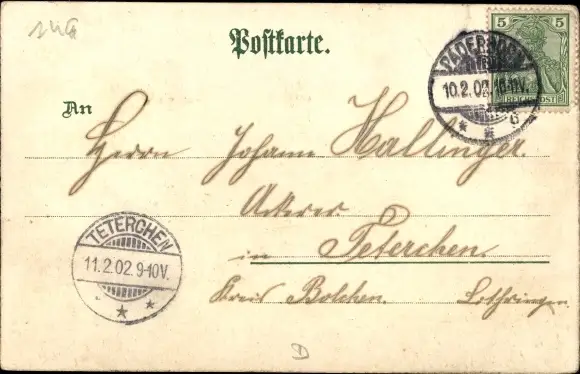 Postkarte.
5 5
REICHSPOST
PADERBORN
10.2.02. 10-11V.
An
Herrn Johann Hallinger.
Ackerer
in Teterchen.
TETERCHEN
11.2.02. 9-10V.
Kreis Bolchen. Lothringen.
D